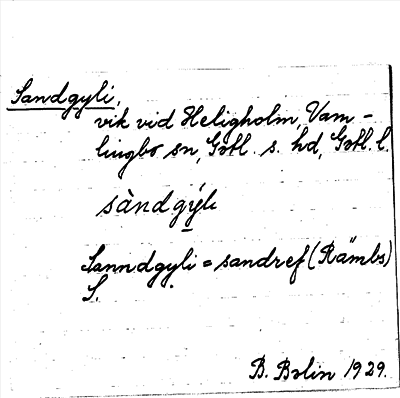 Sandgyli,
vik vid Heligholm, Vam-
lingbo sn, Gotl. s. hd, Gotl. l.
sàndgýli
Sanndgyli = sandref (Rämbs)
S.
B. Bolin 1929.